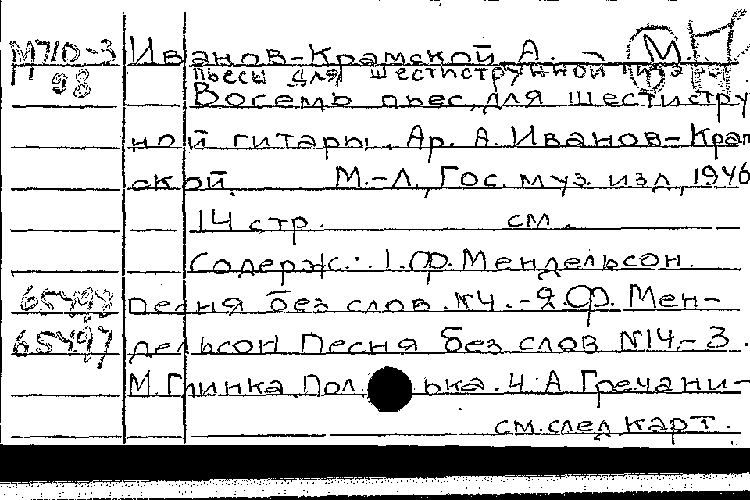 М710-3 Иванов-Крамской А. - М.
98 пьесы для шестиструнной
Восемь пьес, для шестистру
ной гитары. Ар. А. Иванов-Крам
ской. М.-Л., Гос. муз. изд, 1946
14 стр. см.
Содерж.: 1. Ф. Мендельсон.
65498 Песня без слов. N4.-2 Ф. Мен-
65497 дельсон Песня без слов N14.-3.
М. Глинка. Полька. 4. А Гречани-
см. след карт.